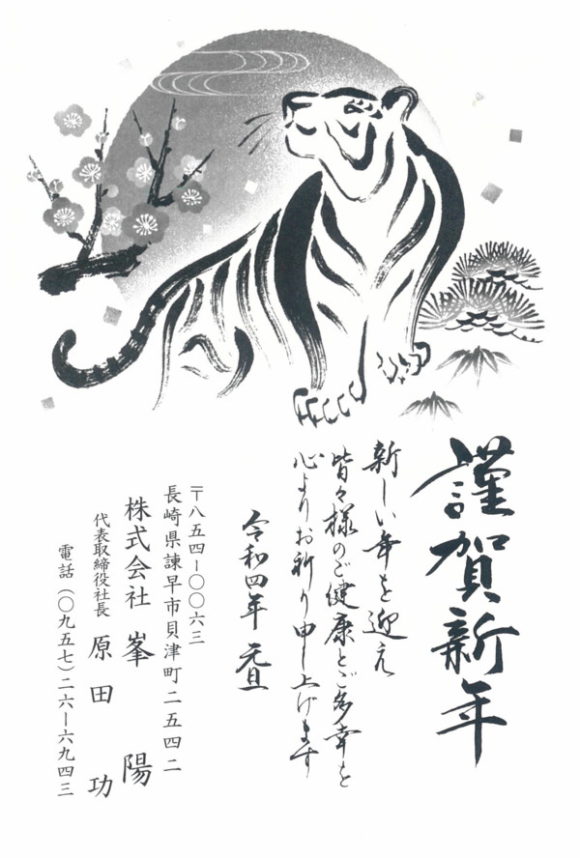 謹賀新年
新しい年を迎え
皆々様のご健康とご多幸を
心よりお祈り申し上げます
令和四年 元旦
〒八五四ー〇〇六三
長崎県諫早市貝津町二五四二
株式会社 峯 陽
代表取締役社長 原田 功
電話(〇九五七)二六ー六九四三